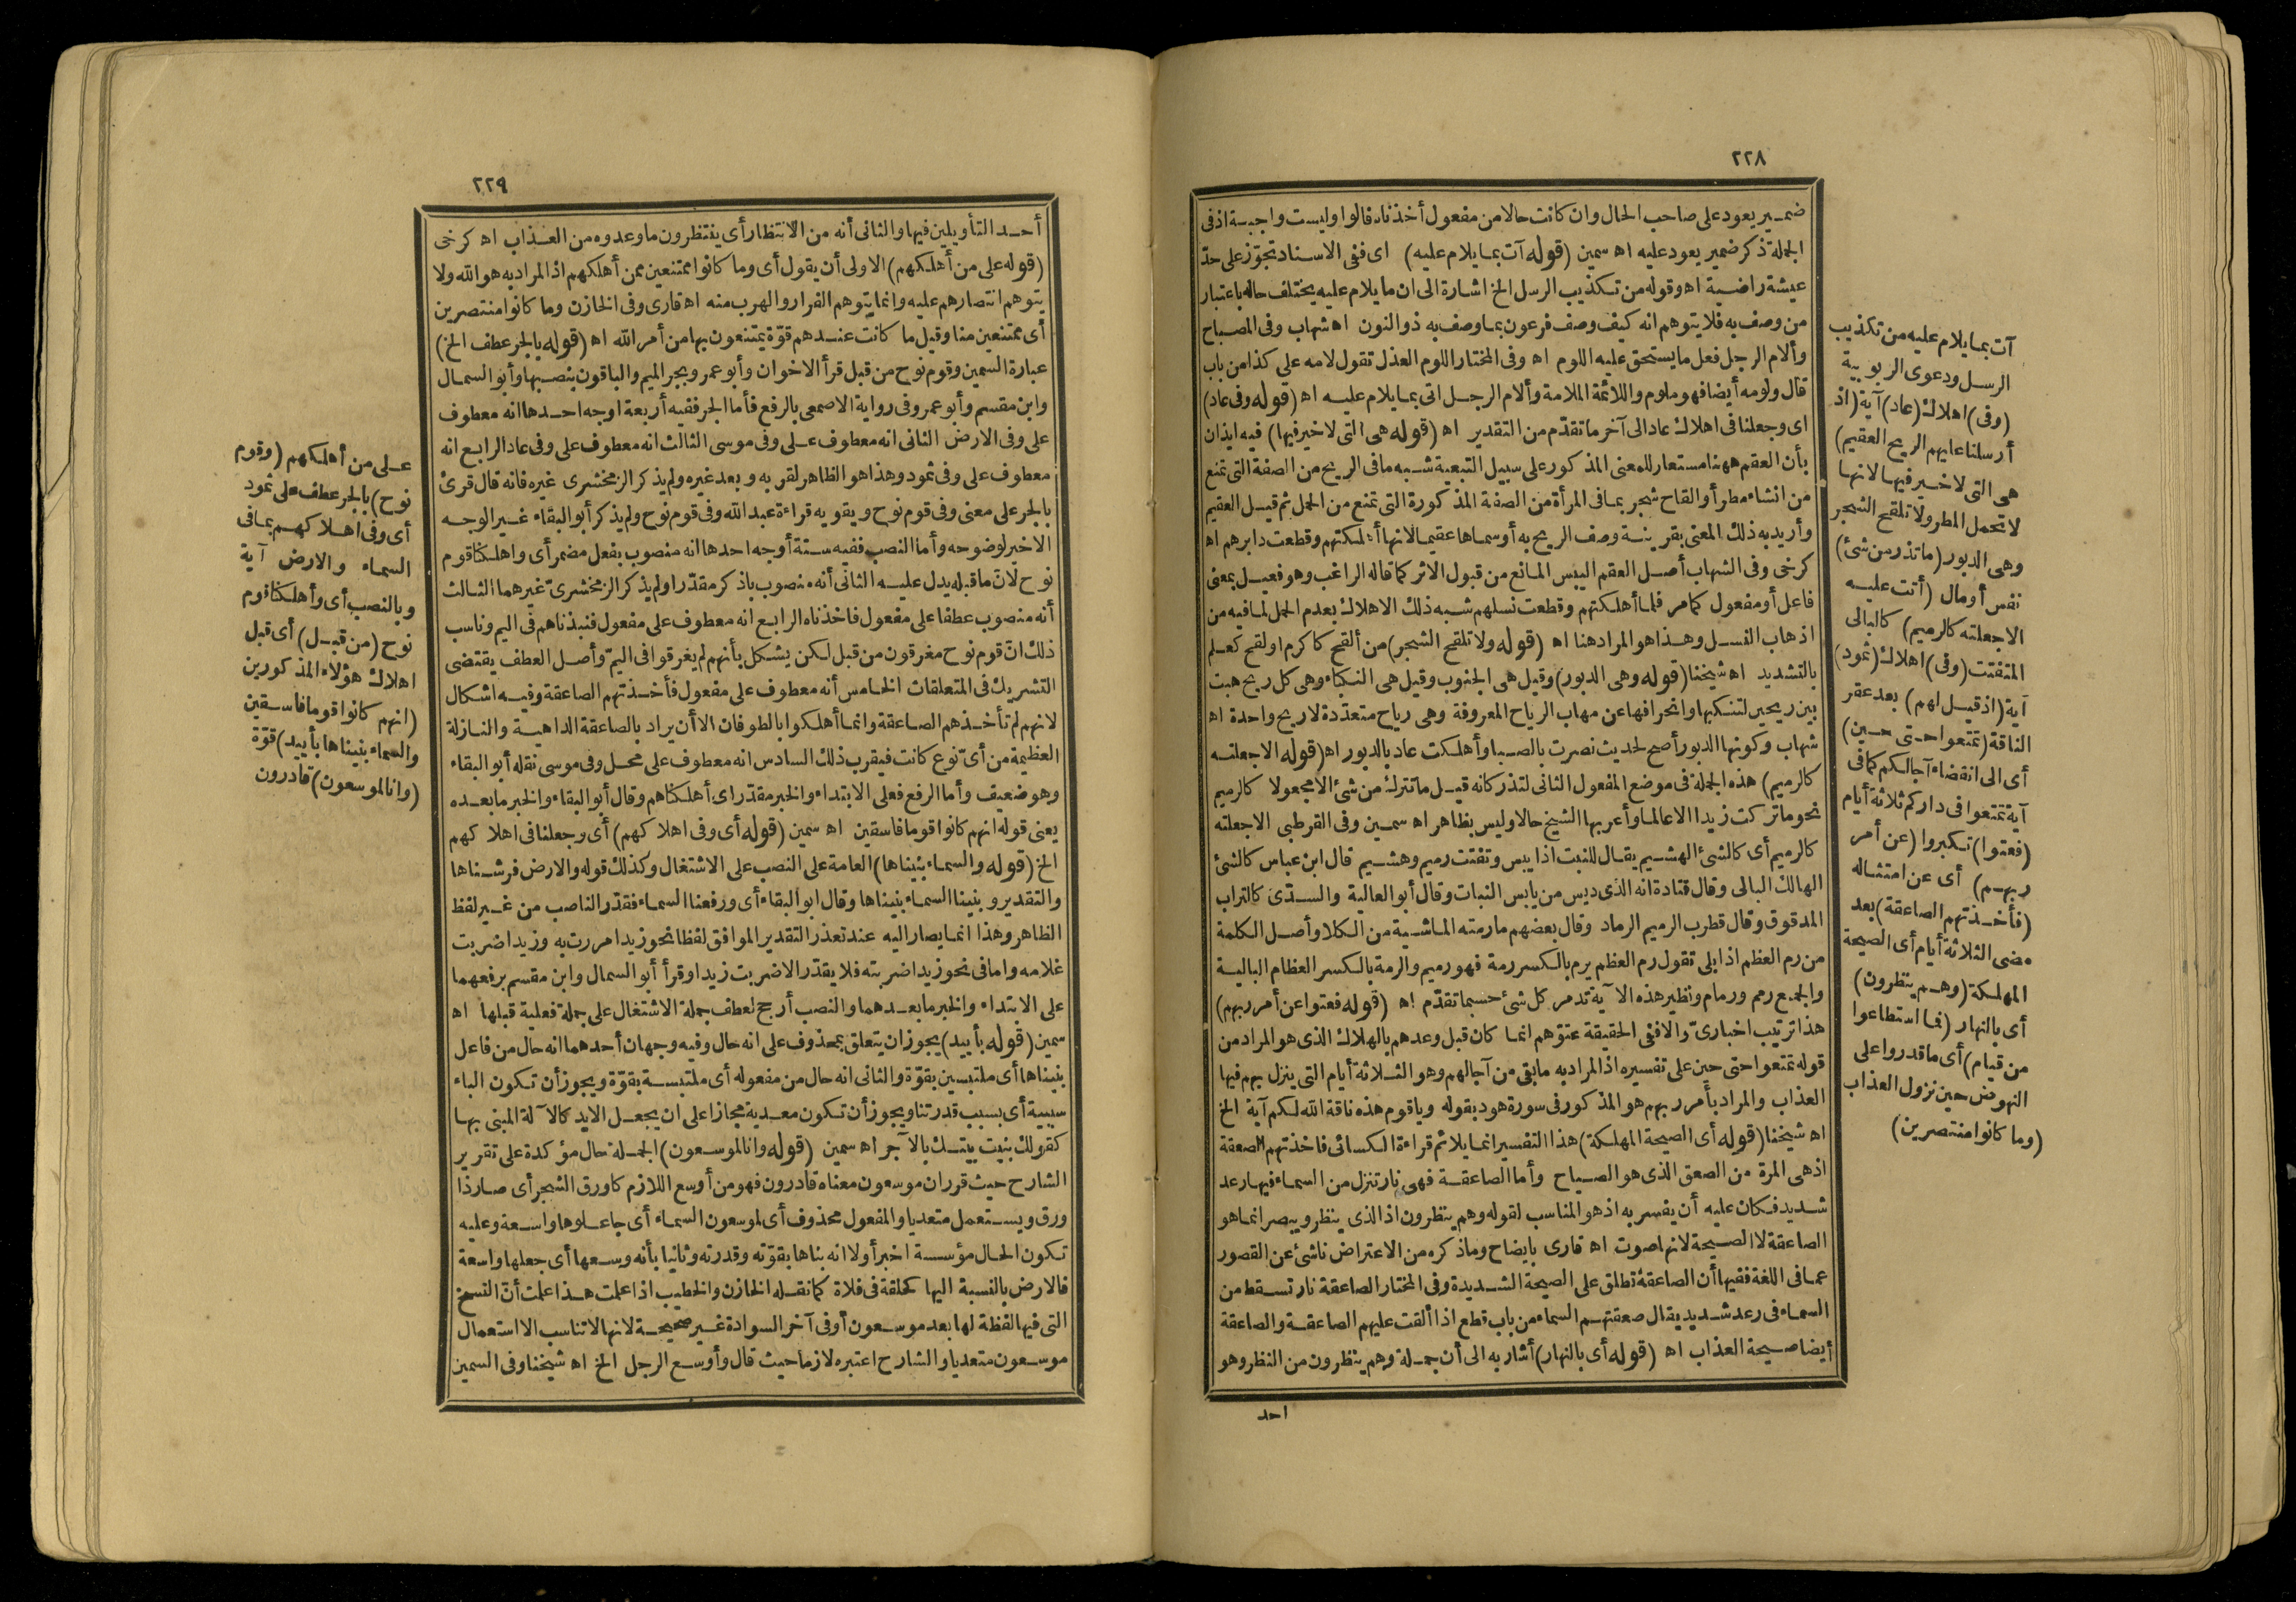 ٢٢٨
ضمير يعود على صاحب الحال وان كانت حالا من مفعول أخذناه فالواو ليست واجبة اذ فى
الجملة ذكر ضمير يعود عليه اه سمين (قوله آت بما يلام عليه) اى ففى الاسناد تجوّز على حدّ
عيشة راضية اه وقوله من تكذيب الرسل الخ اشارة الى ان ما يلام عليه يختلف حاله باعتبار
من وصف به فلا يتوهم انه كيف وصف فرعون بما وصف به ذو النون اه شهاب وفى المصباح
وألام الرجل فعل ما يستحق عليه اللوم اه وفى المختار اللوم العذل تقول لامه على كذا من باب
قال ولومة أيضا فهو ملوم واللائمة الملامة وألام الرجل اتى بما يلام عليه اه (قوله وفى عاد)
اى وجعلنا فى اهلاك عاد الى آخر ما تقدّم من التقدير اه (قوله هى التى لا خير فيها) فيه ايذان
بأن العقم ههنا مستعار للمعنى المذكور على سبيل التبعية شبه ما فى الريح من الصفة التى تمنع
من انشاء مطر أو القاح شجر بما فى المرأة من الصفة المذكورة التى تمنع من الحمل ثم قيل العقيم
وأريد به ذلك المعنى بقرينة وصف الريح به أو سماها عقيما لانها أهلكتهم وقطعت دابرهم اه
كرخى وفى الشهاب أصل العقم اليبس المانع من قبول الاثر كما قاله الراغب وهو فعيل بمعنى
فاعل أو مفعول كما مر فلما أهلكتهم وقطعت نسلهم شبه ذلك الاهلاك بعدم الحمل لما فيه من
اذهاب النسل وهذا هو المراد هنا اه (قوله ولا تلقح الشجر) من ألقح كاكرم او لقح كعلم
بالتشديد اه شيخنا (قوله وهى الدبور) وقيل هى الجنوب وقيل هى النكباء وهى كل ريح هبت
بين ريحين لتنكبها وانحرافها عن مهاب الرياح المعروفة وهى رياح متعدّدة لا ريح واحدة اه
شهاب وكونها الدبور أصح لحديث نصرت بالصبا وأهلكت عاد بالدبور اه (قوله الا جعلته
كالرميم) هذه الجملة فى موضع المفعول الثانى لتذر كانه قيل ما تترك من شئ الا مجعولا كالرميم
نحو ما تركت زيدا الا عالما وأعربها الشيخ حالا وليس بظاهر اه سمين وفى القرطبى الا جعلته
كالرميم أى كالشئ الهشيم يقال للنبت اذا يبس وتفتت رميم وهشيم قال ابن عباس كالشئ
الهالك البالى وقال قتادة انه الذى ديس من يابس النبات وقال أبو العالية والسدّى كالتراب
المدقوق وقال قطرب الرميم الرماد وقال بعضهم ما رمته الماشية من الكلا وأصل الكلمة
من رم العظم اذا بلى تقول رم العظم يرم بالكسر رمة فهو رميم والرمة بالكسر العظام البالية
والجمع رمم ورمام ونظير هذه الآية تدمر كل شئ حسبما تقدّم اه (قوله فعتوا عن أمر ربهم)
هذا ترتيب اخبارىّ والا ففى الحقيقة عتوّهم انما كان قبل وعدهم بالهلاك الذى هو المراد من
قوله تمتعوا حتى حين على تفسيره اذ المراد به ما بقى من آجالهم وهو الثلاثة أيام التى ينزل بهم فيها
العذاب والمراد بأمر ربهم هو المذكور فى سورة هود بقوله ويا قوم هذه ناقة الله لكم آية الخ
اه شيخنا (قوله أى الصيحة المهلكة) هذا التفسير انما يلائم قراءة الكسائى فاخذتهم الصعقة
اذ هى المرة من الصعق الذى هو الصياح وأما الصاعقة فهى نار تنزل من السماء فيها رعد
شديد فكان عليه أن يفسر به اذ هو المناسب لقوله وهم ينظرون اذ الذى ينظر ويبصر انما هو
الصاعقة لا الصيحة لانها صوت اه قارى بايضاح وما ذكره من الاعتراض ناشئ عن القصور
عما فى اللغة ففيها أن الصاعقة تطلق على الصيحة الشديدة وفى المختار الصاعقة نار تسقط من
السماء فى رعد شديد يقال صعقتهم السماء من باب قطع اذا ألقت عليهم الصاعقة والصاعقة
أيضا صيحة العذاب اه (قوله أى بالنهار) أشار به الى أن جملة وهم ينظرون من النظر وهو
احد
آت بما يلام عليه من تكذيب
الرسل ودعوى الربوبية
(وفى) اهلاك (عاد) آية (اذ
أرسلنا عليهم الريح العقيم)
هى التى لا خير فيها لانها
لا تحمل المطر ولا تلقح الشجر
وهى الدبور (ما تذر من شئ)
نفس أو مال (أتت عليه
الا جعلته كالرميم) كالبالى
المتفتت (وفى) اهلاك (ثمود)
آية (اذ قيل لهم) بعد عقر
الناقة (تمتعوا حتى حين)
أى الى انقضاء آجالكم كما فى
آية تمتعوا فى داركم ثلاثة أيام
(فعتوا) تكبروا (عن أمر
ربهم) أى عن امتثاله
(فأخذتهم الصاعقة) بعد
مضى الثلاثة أيام أى الصيحة
المهلكة (وهم ينظرون)
أى بالنهار (فما استطاعوا
من قيام) أى ما قدروا على
النهوض حين نزول العذاب
(وما كانوا منتصرين)
٢٢٩
أحد التأويلين فيها والثانى أنه من الانتظار أى ينتظرون ما وعدوه من العذاب اه كرخى
(قوله على من أهلكهم) الاولى أن يقول أى وما كانوا ممتنعين ممن أهلكهم اذ المراد به هو الله ولا
يتوهم انتصارهم عليه وانما يتوهم الفرار والهرب منه اه قارى وفى الخازن وما كانوا منتصرين
أى ممتنعين منا وقيل ما كانت عندهم قوّة يمتنعون بها من أمر الله اه (قوله بالجر عطف الخ)
عبارة السمين وقوم نوح من قبل قرأ الاخوان وأبو عمرو بجر الميم والباقون بنصبها وأبو السمال
وابن مقسم وأبو عمرو فى رواية الاصمعى بالرفع فأما الجر ففيه أربعة اوجه احدها انه معطوف
على وفى الارض الثانى انه معطوف على وفى موسى الثالث انه معطوف على وفى عاد الرابع انه
معطوف على وفى ثمود وهذا هو الظاهر لقربه وبعد غيره ولم يذكر الزمخشرى غيره فانه قال قرئ
بالجر على معنى وفى قوم نوح ويقويه قراءة عبد الله وفى قوم نوح ولم يذكر أبو البقاء غير الوجه
الاخير لوضوحه وأما النصب ففيه ستة أوجه احدها انه منصوب بفعل مضمر أى واهلكنا قوم
نوح لان ما قبله يدل عليه الثانى أنه منصوب باذكر مقدّرا ولم يذكر الزمخشرىّ غيرهما الثالث
أنه منصوب عطفا على مفعول فاخذناه الرابع انه معطوف على مفعول فنبذناهم فى اليم وناسب
ذلك انّ قوم نوح مغرقون من قبل لكن يشكل بأنهم لم يغرقوا فى اليمّ وأصل العطف يقتضى
التشريك فى المتعلقات الخامس أنه معطوف على مفعول فأخذتهم الصاعقة وفيه اشكال
لانهم لم تأخذهم الصاعقة وانما أهلكوا بالطوفان الا أن يراد بالصاعقة الداهية والنازلة
العظيمة من أى نوع كانت فيقرب ذلك السادس انه معطوف على محل وفى موسى نقله أبو البقاء
وهو ضعيف وأما الرفع فعلى الابتداء والخبر مقدّر اى أهلكناهم وقال أبو البقاء والخبر ما بعده
يعنى قوله انهم كانوا قوما فاسقين اه سمين (قوله أى وفى اهلاكهم) أى وجعلنا فى اهلاكهم
الخ (قوله والسماء بنيناها) العامة على النصب على الاشتغال وكذلك قوله والارض فرشناها
والتقدير وبنينا السماء بنيناها وقال ابو البقاء أى ورفعنا السماء فقدّر الناصب من غير لفظ
الظاهر وهذا انما يصار اليه عند تعذر التقدير الموافق لفظا نحو زيدا مررت به وزيدا ضربت
غلامه واما فى نحو زيدا ضربته فلا يقدّر الا ضربت زيدا وقرأ أبو السمال وابن مقسم برفعهما
على الابتداء والخبر ما بعدهما والنصب أرجح لعطف جملة الاشتغال على جملة فعلية قبلها اه
سمين (قوله بأييد) يجوز ان يتعلق بمحذوف على انه حال وفيه وجهان أحدهما انه حال من فاعل
بنيناها أى ملتبسين بقوّة والثانى انه حال من مفعوله أى ملتبسة بقوّة ويجوز أن تكون الباء
سببية أى بسبب قدرتنا ويجوز أن تكون معدية مجازا على ان يجعل الايد كالآلة المبنى بها
كقولك بنيت بيتك بالآجر اه سمين (قوله وانا لموسعون) الجملة حال مؤكدة على تقرير
الشارح حيث قرر ان موسعون معناه قادرون فهو من أوسع اللازم كاورق الشجر أى صار ذا
ورق ويستعمل متعديا والمفعول محذوف أى لموسعون السماء أى جاعلوها واسعة وعليه
تكون الحال مؤسسة اخبر أولا انه بناها بقوّته وقدرته وثانيا بأنه وسعها أى جعلها واسعة
فالارض بالنسبة اليها كحلقة فى فلاة كما نقله الخازن والخطيب اذا علمت هذا علمت أنّ النسخ
التى فيها لفظة لها بعد موسعون أو فى آخر السوادة غير صحيحة لانها لا تناسب الا استعمال
موسعون متعديا والشارح اعتبره لازما حيث قال وأوسع الرجل الخ اه شيخنا وفى السمين
على من أهلكهم (وقوم
نوح) بالجر عطف على ثمود
أى وفى اهلاكهم بما فى
السماء والارض آية
وبالنصب أى وأهلكنا قوم
نوح (من قبل) أى قبل
اهلاك هؤلاء المذكورين
(انهم كانوا قوما فاسقين
والسماء بنيناها بأييد) قوّة
(وانا لموسعون) قادرون